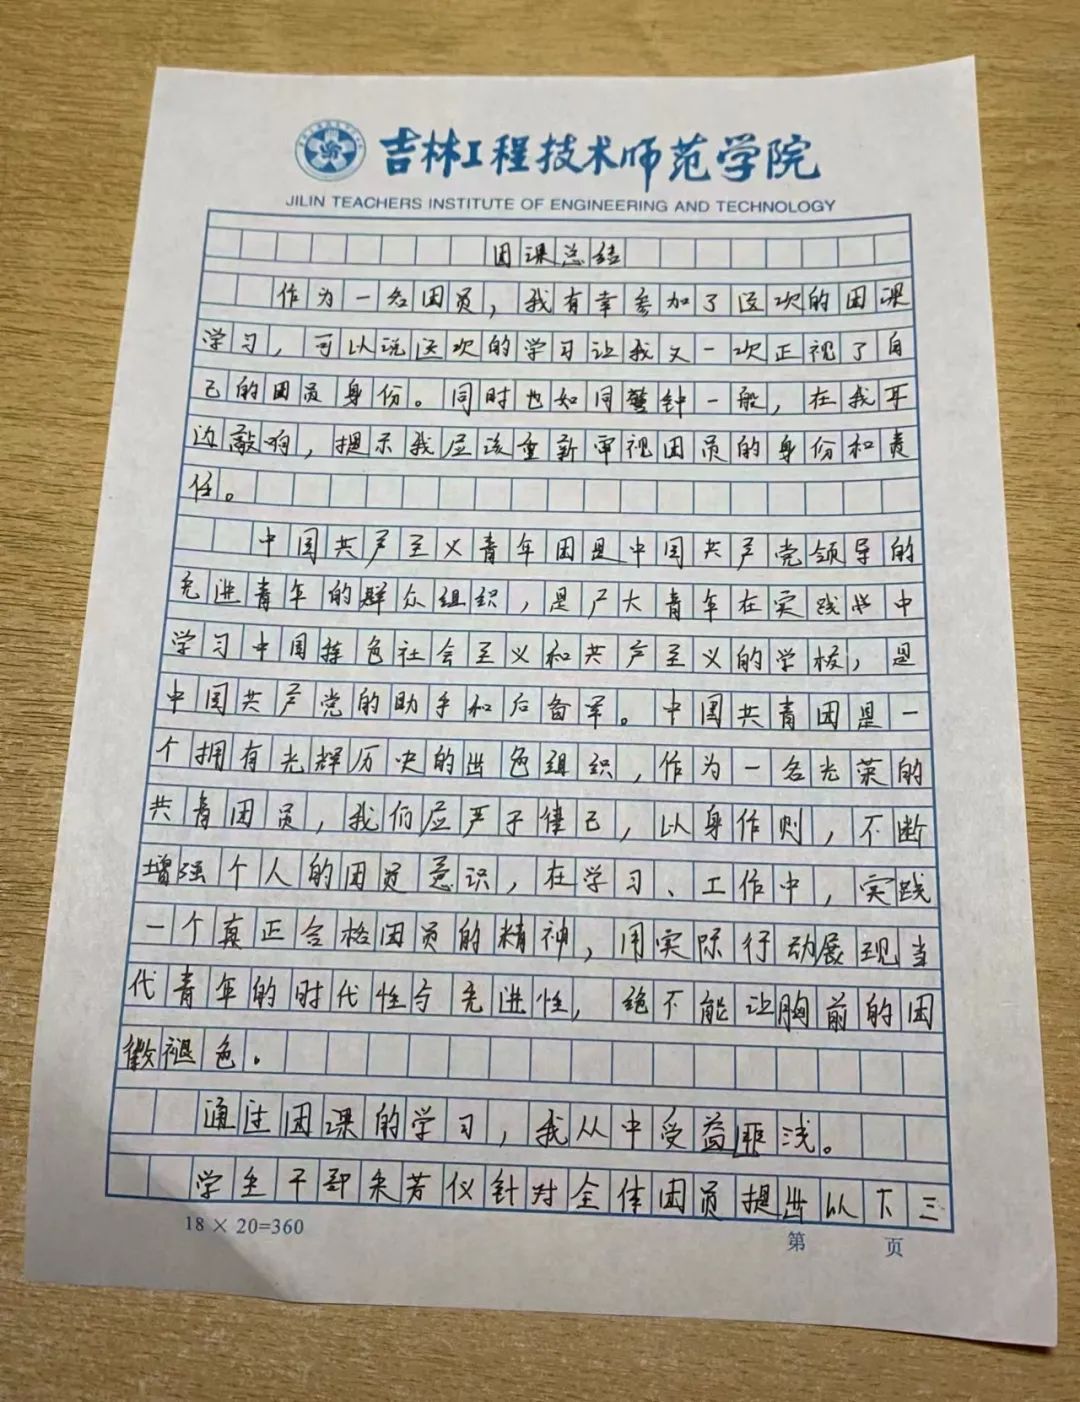 吉林工程技术师范学院
JILIN TEACHERS INSTITUTE OF ENGINEERING AND TECHNOLOGY
团课总结
作为一名团员，我有幸参加了这次的团课
学习，可以说这次的学习让我又一次正视了自
己的团员身份。同时也如同警钟一般，在我耳
边敲响，提示我应该重新审视团员的身份和责
任。
中国共产主义青年团是中国共产党领导的
先进青年的群众组织，是广大青年在实践当中
学习中国特色社会主义和共产主义的学校，是
中国共产党的助手和后备军。中国共青团是一
个拥有光辉历史的出色组织，作为一名光荣的
共青团员，我们应严于律己，以身作则，不断
增强个人的团员意识，在学习、工作中，实践
一个真正合格团员的精神，用实际行动展现当
代青年的时代性与先进性，绝不能让胸前的团
徽褪色。
通过团课的学习，我从中受益匪浅。
学生干部朱芳仪针对全体团员提出以下三
18 × 20=360
第 页